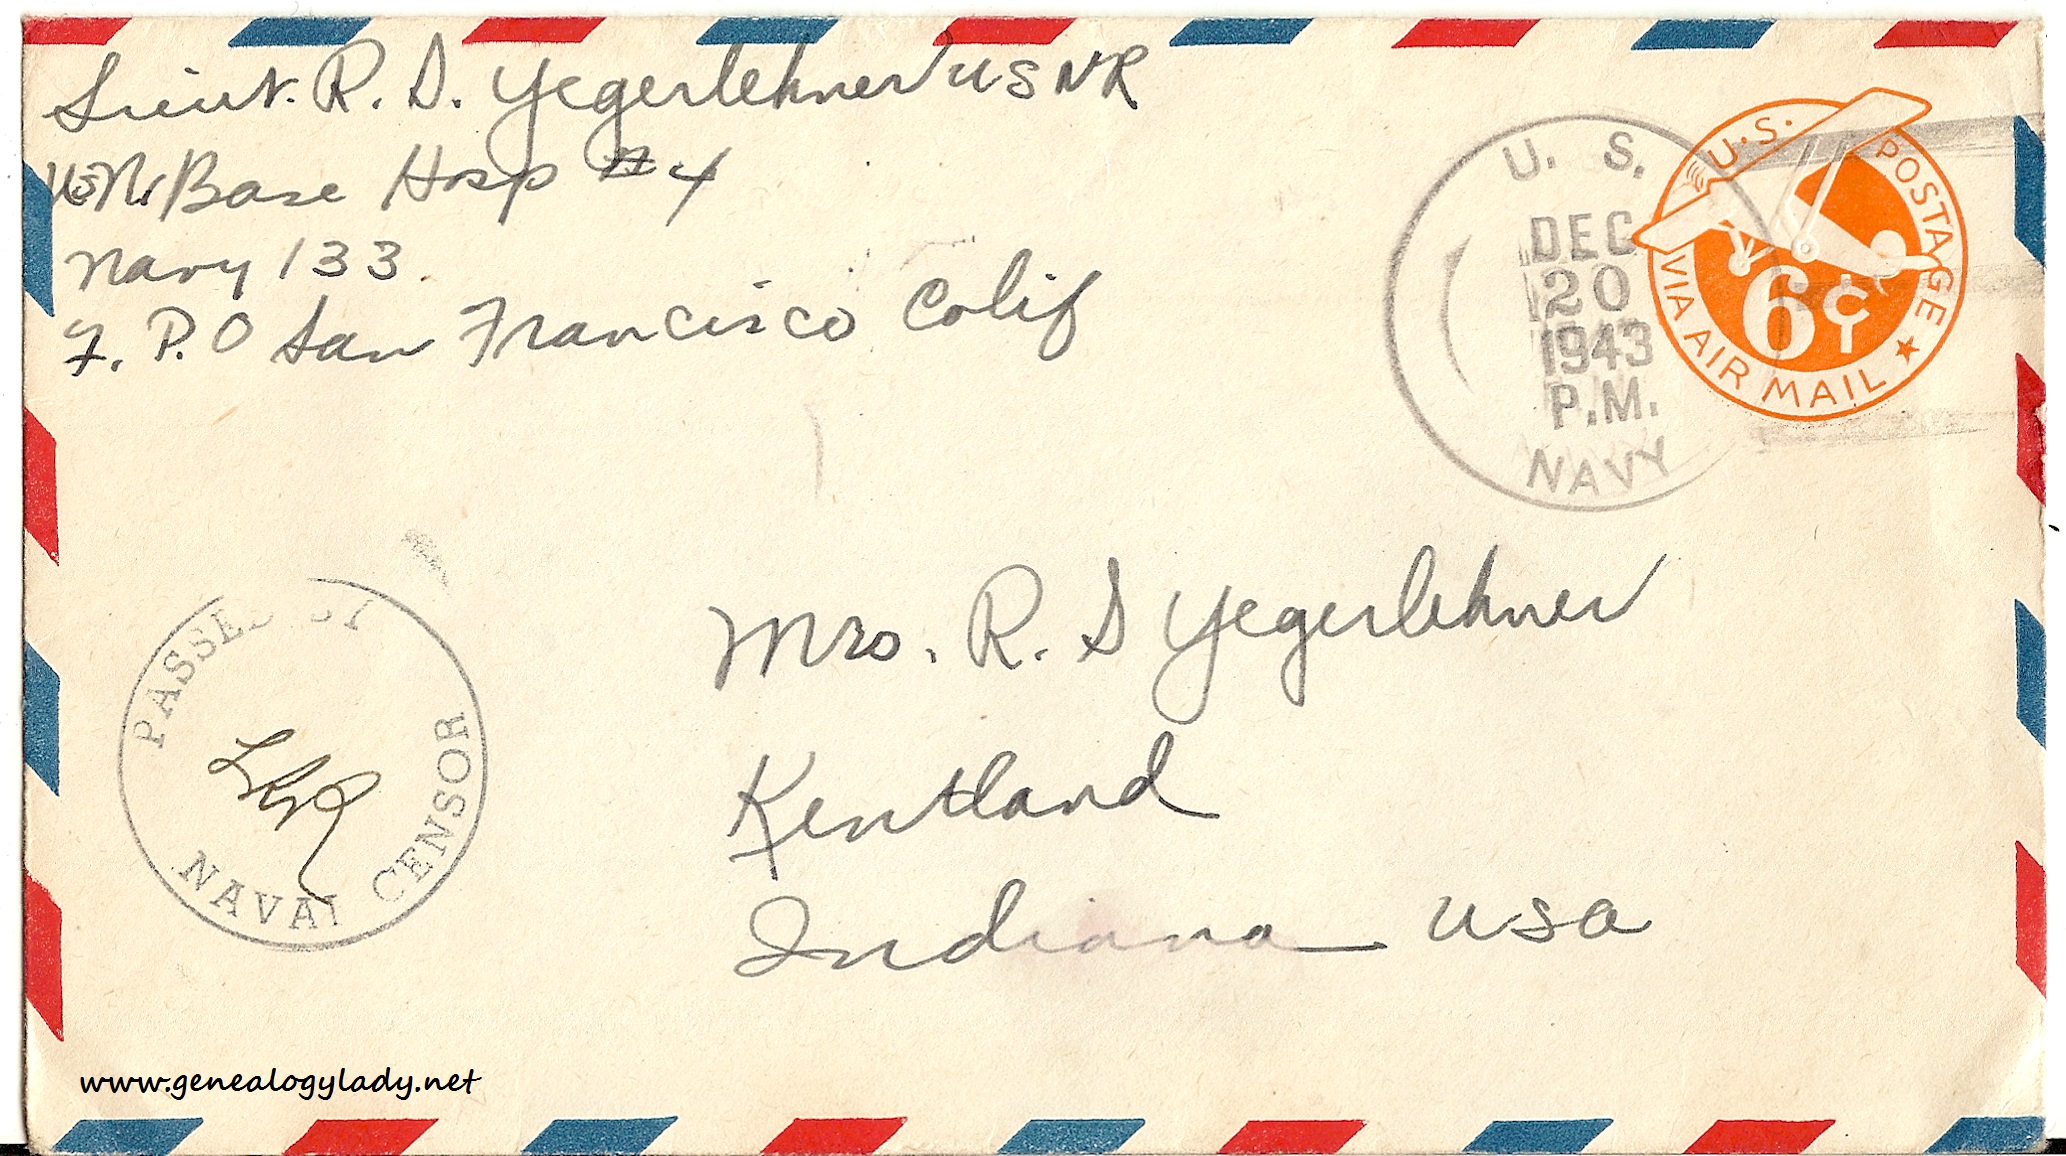 Lieut. R. D. Yegerlehner USNR
U.S.N. Base Hosp #4
Navy 133
F. P. O San Francisco Calif
U. S.
DEC
20
1943
P.M.
NAVY
U.S. POSTAGE
VIA AIR MAIL
6¢
Mrs. R. S Yegerlehner
Kentland
Indiana USA
PASSED BY
NAVAL CENSOR
www.genealogylady.net